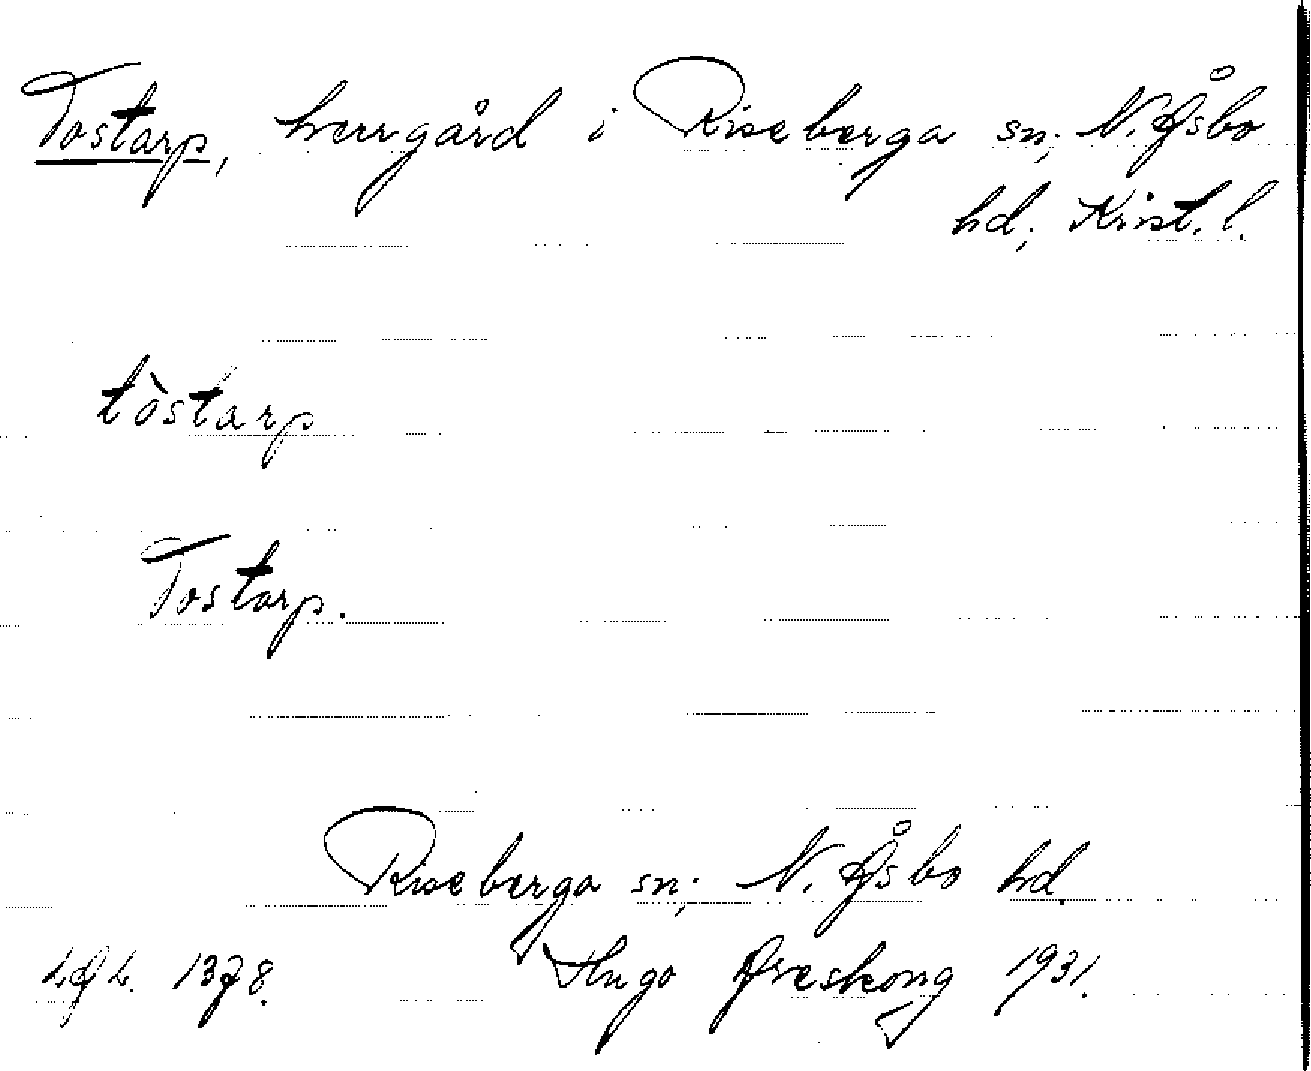 Tostarp, herrgård i Riseberga sn; N. Åsbo
hd; Krist. l.
tòstarp
Tostarp.
Riseberga sn; N. Åsbo hd.
Hugo Areskoug 1931.